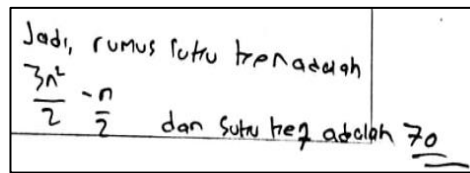 Jadi, rumus suku ke n adalah
3n²/2 - n/2 dan suku ke 7 adalah 70